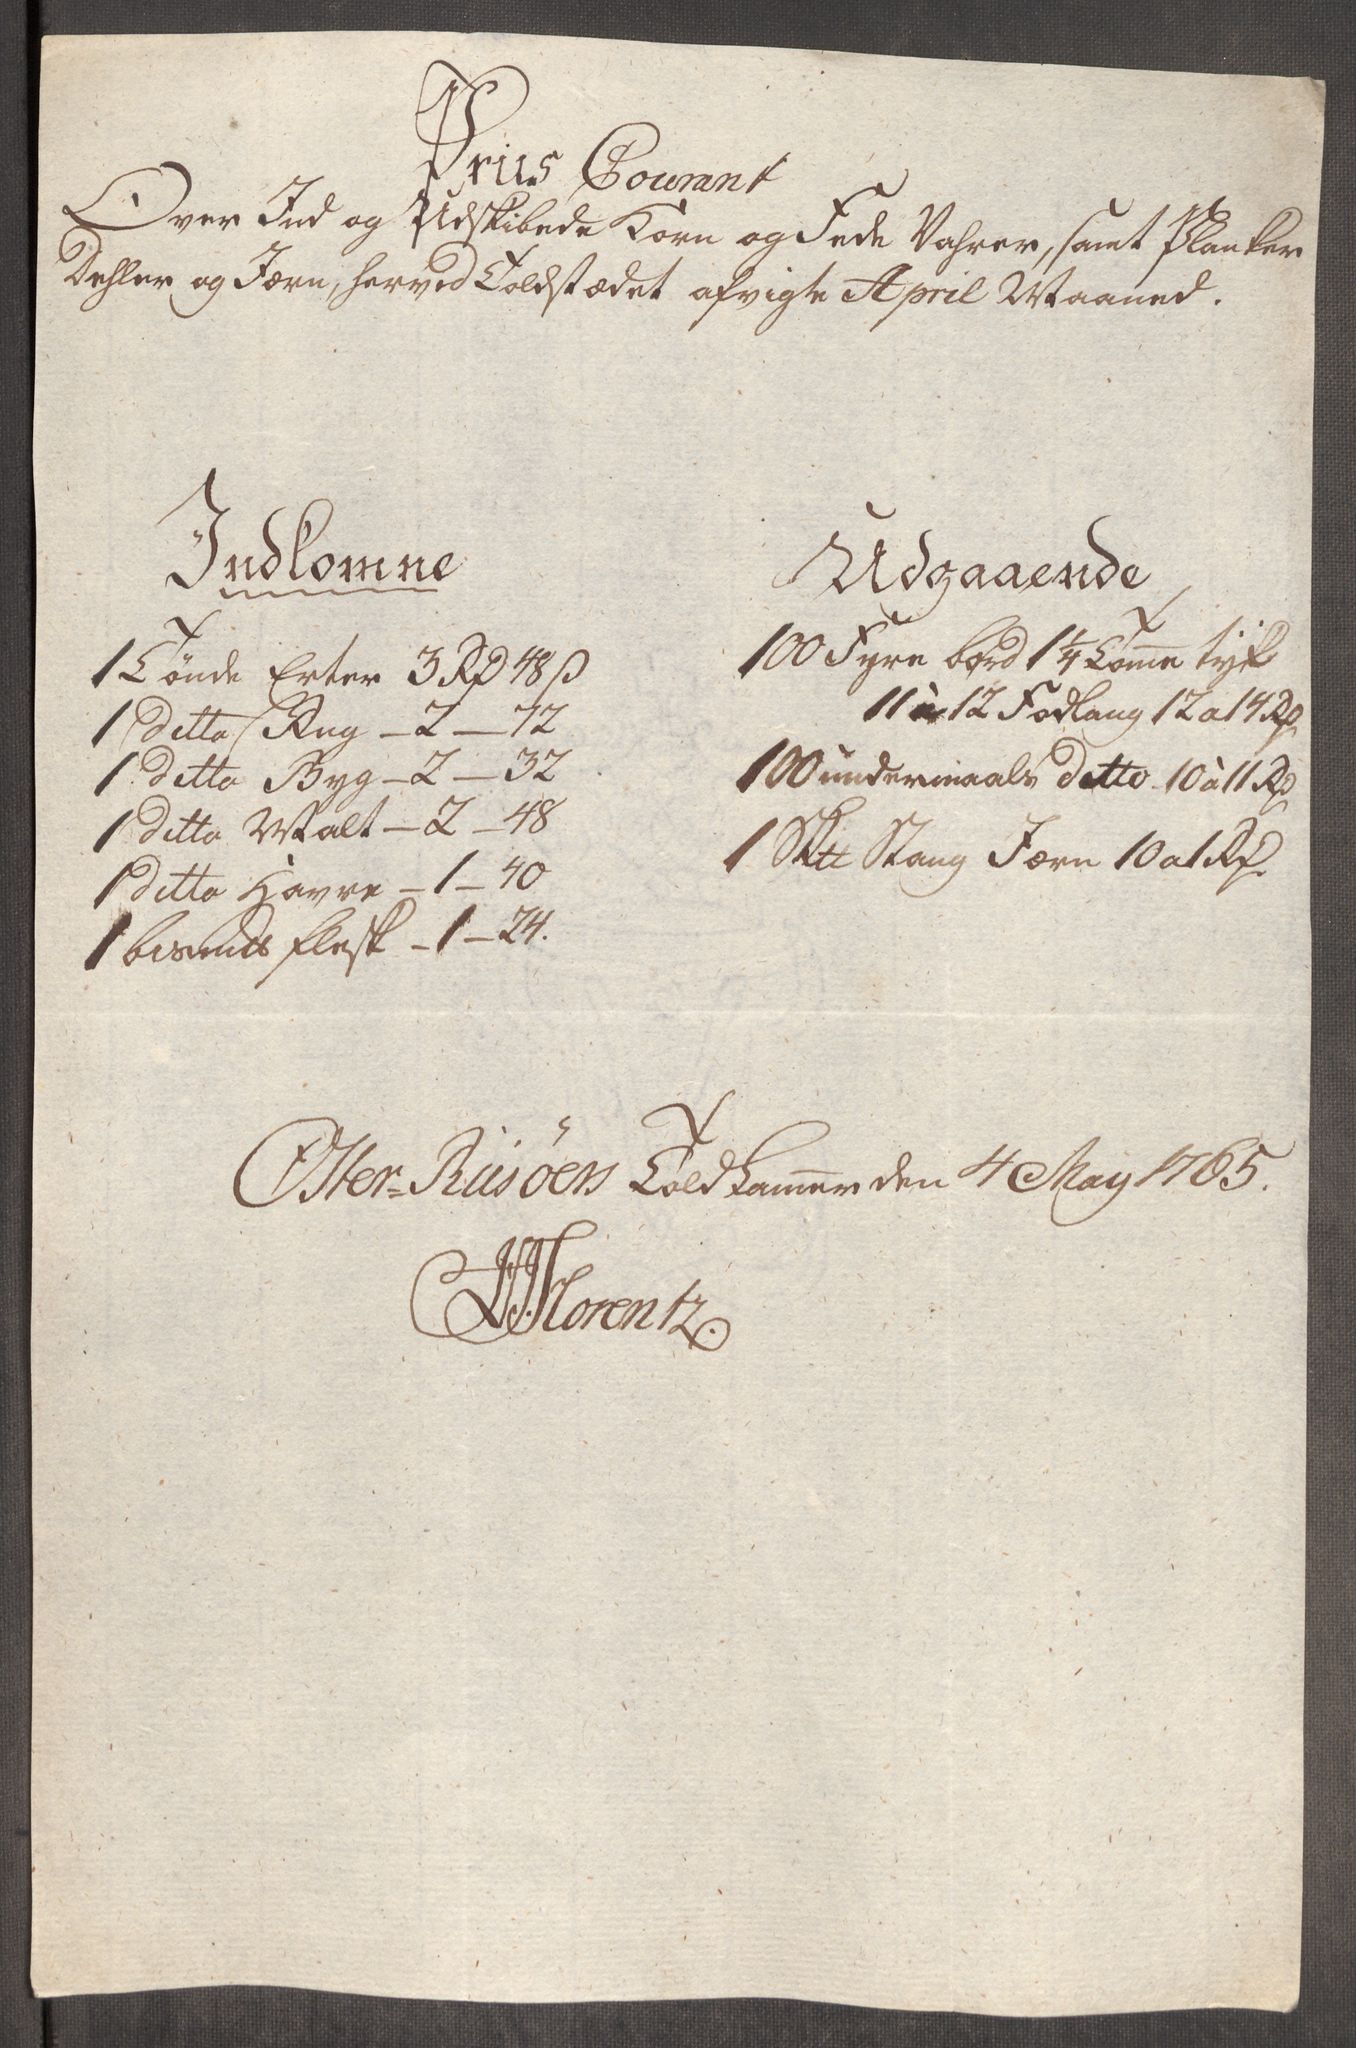 Priis Courant
Over Ind og Udskibede Korn og Fede Vahrer, samt Planker
Dehler og Jærn, herved Toldstædet afvigte April Maaned.
Indkomne
1 Tønde Erter 3 Rd 48 ß
1 ditto Rug – 2 – 72
1 ditto Byg – 2 – 32
1 ditto Malt – 2 – 48
1 ditto Havre – 1 – 40
1 bismd flesk – 1 – 24.
Udgaaende
100 Fyre bord 1 1/4 Tomme tyk
11 à 12 Fod lang 12 a 14 Rd
100 undermaals ditto 10 à 11 Rd
1 Sktt Stang Jærn 10 a 1 Rd
Öster-Riisöers Toldkammer den 4 May 1765.
Florentz.